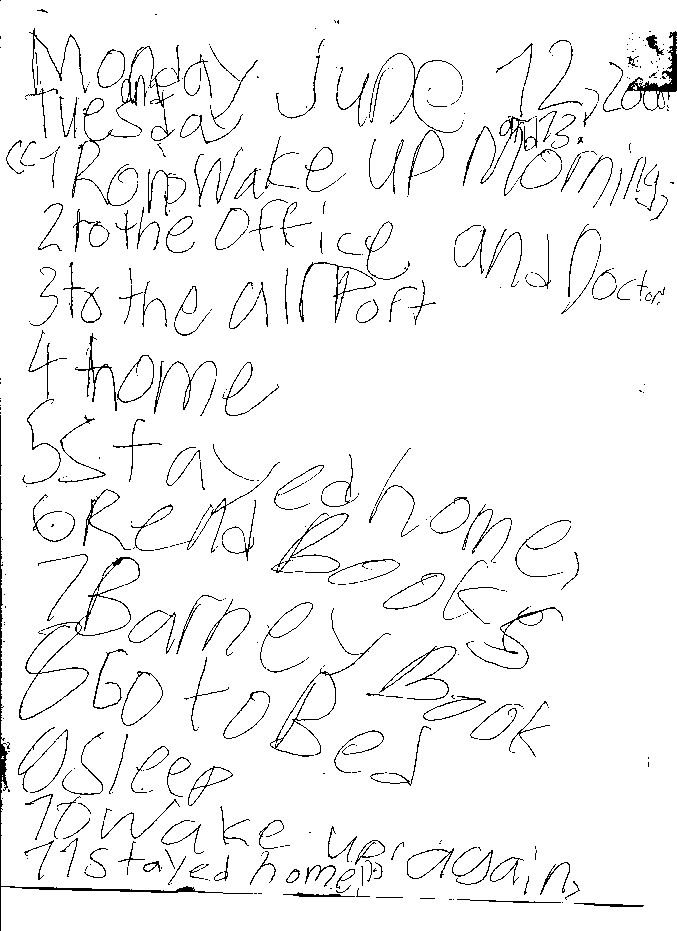 Monday June 12, 2000
and
Tuesday and 13.
"1 Wake up Morning,
2 to the office and Doctor
3 to the airport
4 home
5 Stayed home,
6 Read Books
7 Barney Book
8 Go to Bed
9 Sleep
10 Wake up again,
11 Stayed home